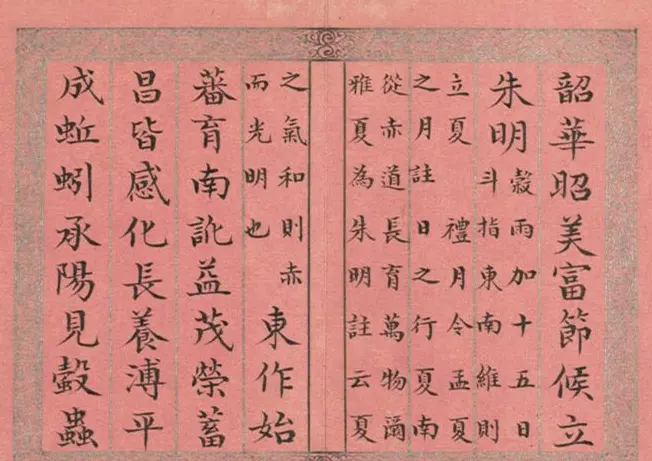 韶華昭美富節候立
朱明
穀雨加十五日
斗指東南維則
立夏 禮月令孟夏
之月註日之行夏南
從赤道長育萬物爾
雅夏為朱明註云夏
之氣和則赤
而光明也
東作始
蕃育南訛益茂榮蓄
昌皆感化長養溥平
成蚯蚓承陽見螜蟲